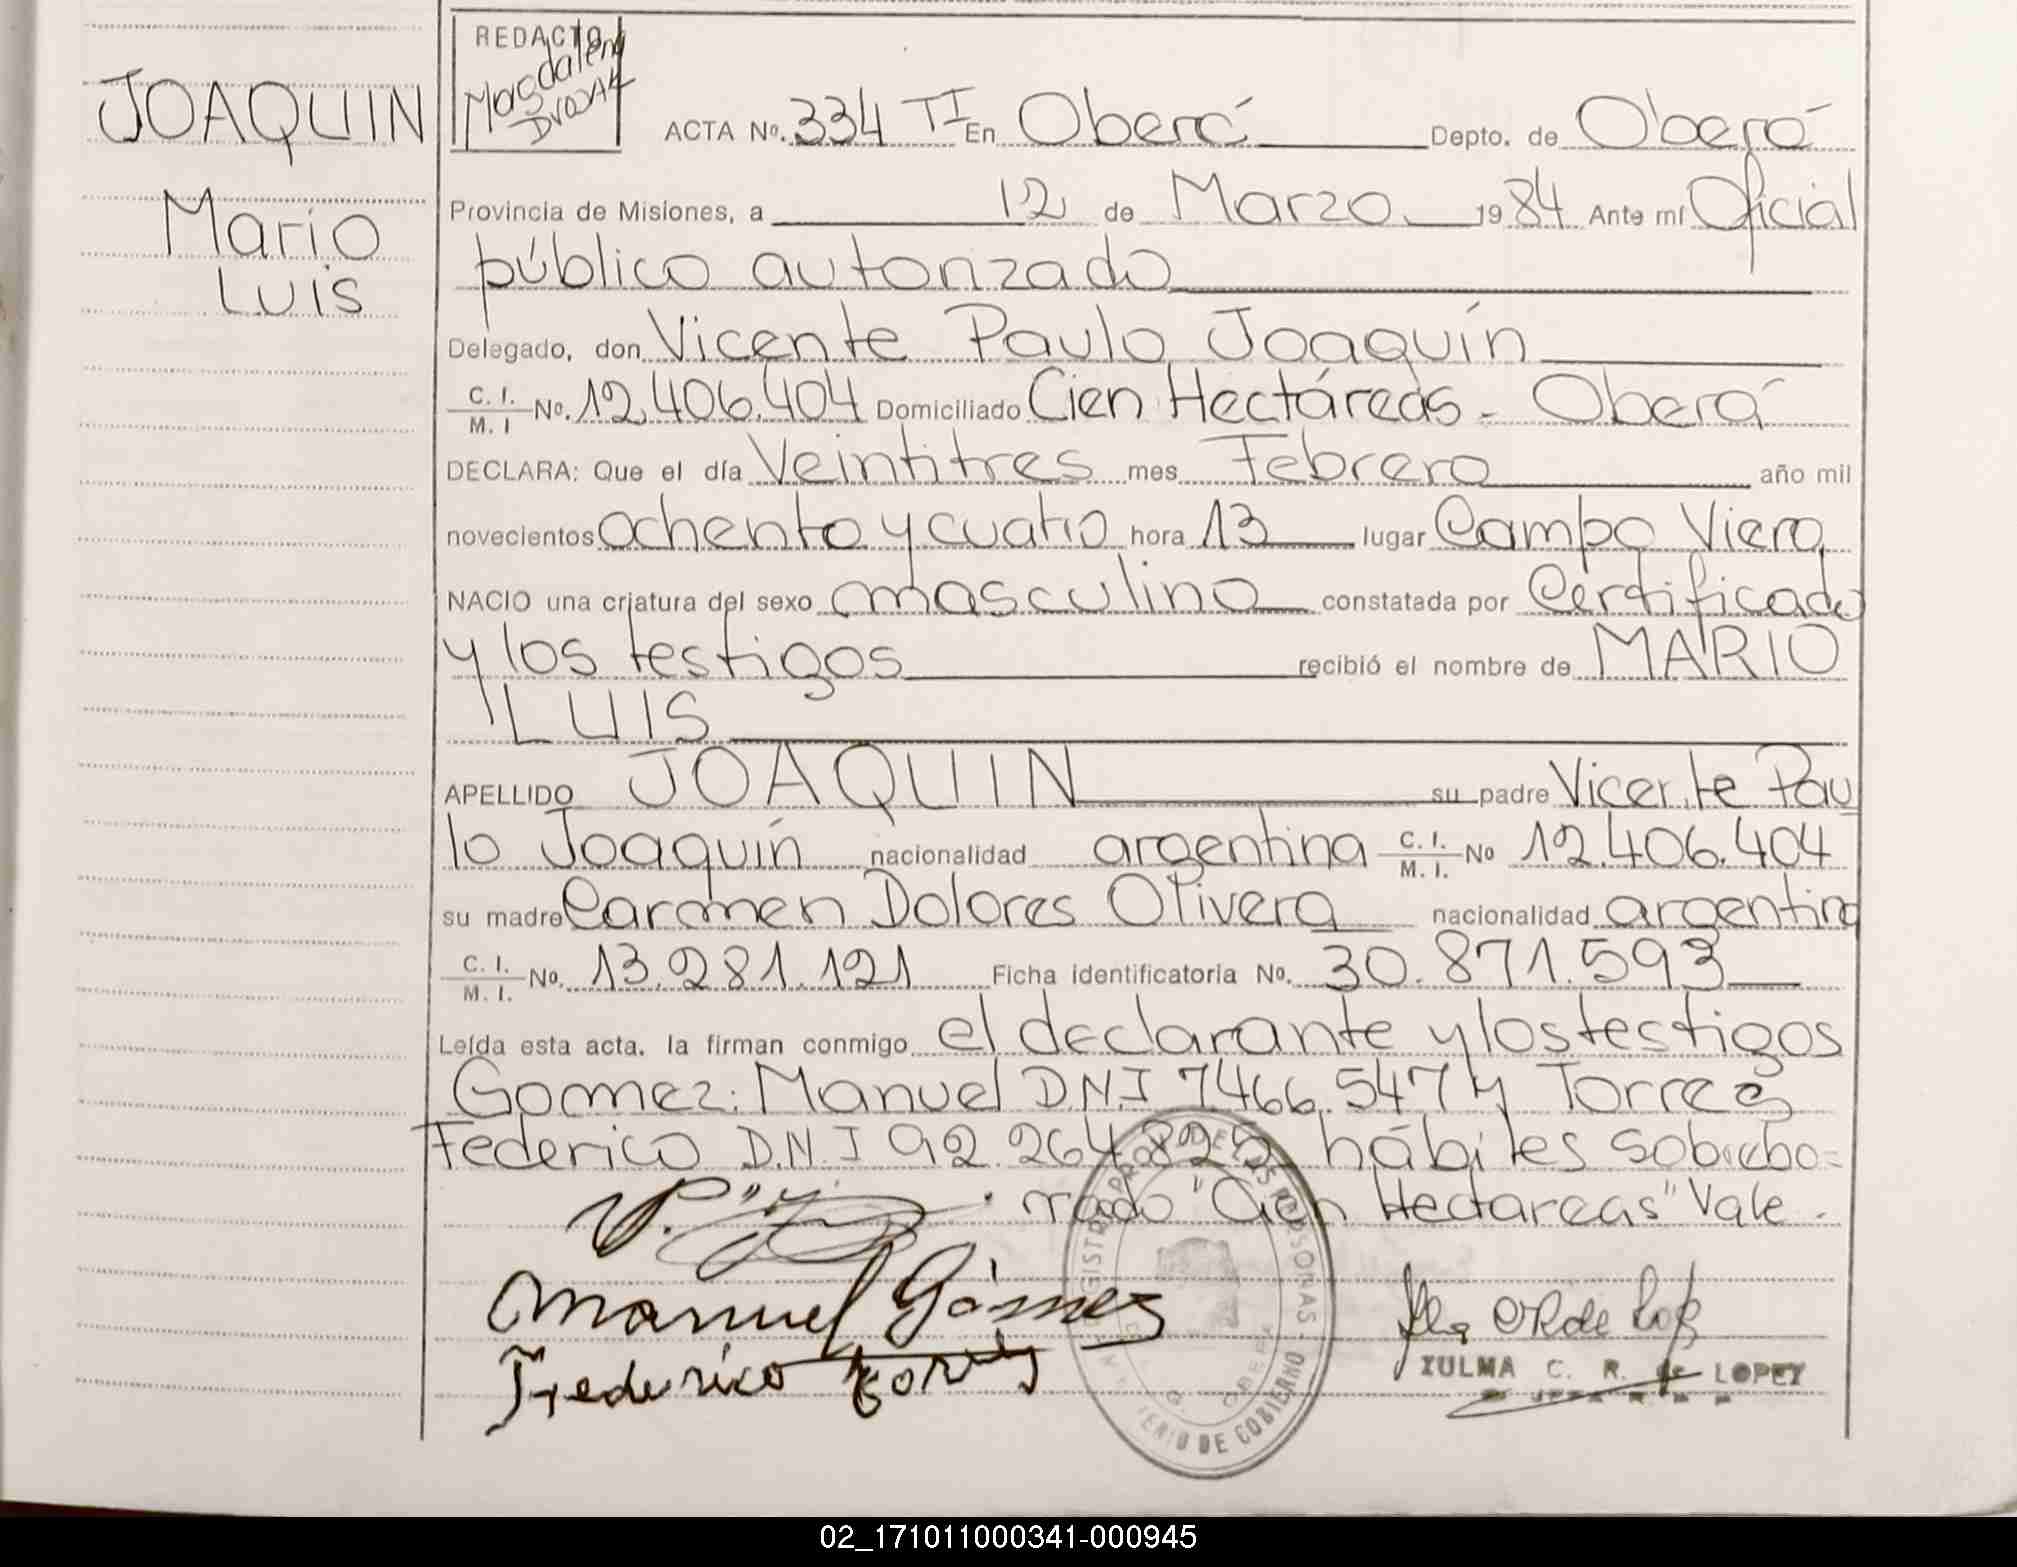 JOAQUIN
Mario
Luis
REDACTO
Magdalena
ACTA Nº. 334 TI En Oberá Depto. de Oberá
Provincia de Misiones, a 12 de Marzo 1984 Ante mí Oficial
público autorizado
Delegado, don Vicente Paulo Joaquín
C. I. / M. I Nº. 12.406.404 Domiciliado Cien Hectáreas - Oberá
DECLARA: Que el día Veintitres mes Febrero año mil
novecientos ochenta y cuatro hora 13 lugar Campo Viera
NACIO una criatura del sexo masculino constatada por Certificado
y los testigos recibió el nombre de MARIO
LUIS
APELLIDO JOAQUIN su padre Vicente Pau
lo Joaquín nacionalidad argentina C. I. / M. I. Nº 12.406.404
su madre Carmen Dolores Olivera nacionalidad argentina
C. I. / M. I. Nº. 13.281.121 Ficha identificatoria Nº. 30.871.593
Leída esta acta, la firman conmigo el declarante y los testigos
Gomez: Manuel D.N.I 7466.547 y Torres
Federico D.N.I 92.264.825 hábiles sobrebo=
rrado "Cien Hectareas" Vale.
Manuel Gómez
Federico Torres
ZULMA C. R. de LOPEZ
DE LAS PERSONAS
DE GOBIERNO
OBERA
02_171011000341-000945